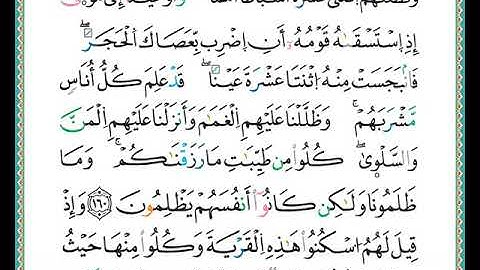 إِذِ اِسْتَسْقَىٰهُ قَوْمُهُۥ أَنِ اِضْرِب بِّعَصَاكَ اَلْحَجَرَۖ
فَانۢبَجَسَتْ مِنْهُ اُثْنَتَا عَشْرَةَ عَيْنًاۖ قَدْ عَلِمَ كُلُّ أُنَاسٍ
مَّشْرَبَهُمْۚ وَظَلَّلْنَا عَلَيْهِمُ اُلْغَمَٰمَ وَأَنزَلْنَا عَلَيْهِمِ اِلْمَنَّ
وَالسَّلْوَىٰۖ كُلُوا۟ مِن طَيِّبَٰتِ مَا رَزَقْنَٰكُمْۚ وَمَا
ظَلَمُونَا وَلَٰكِن كَانُوٓا۟ أَنفُسَهُمْ يَظْلِمُونَ ١٦٠ وَإِذْ
قِيلَ لَهُمُ اُسْكُنُوا۟ هَٰذِهِ اِلْقَرْيَةَ وَكُلُوا۟ مِنْهَا حَيْثُ